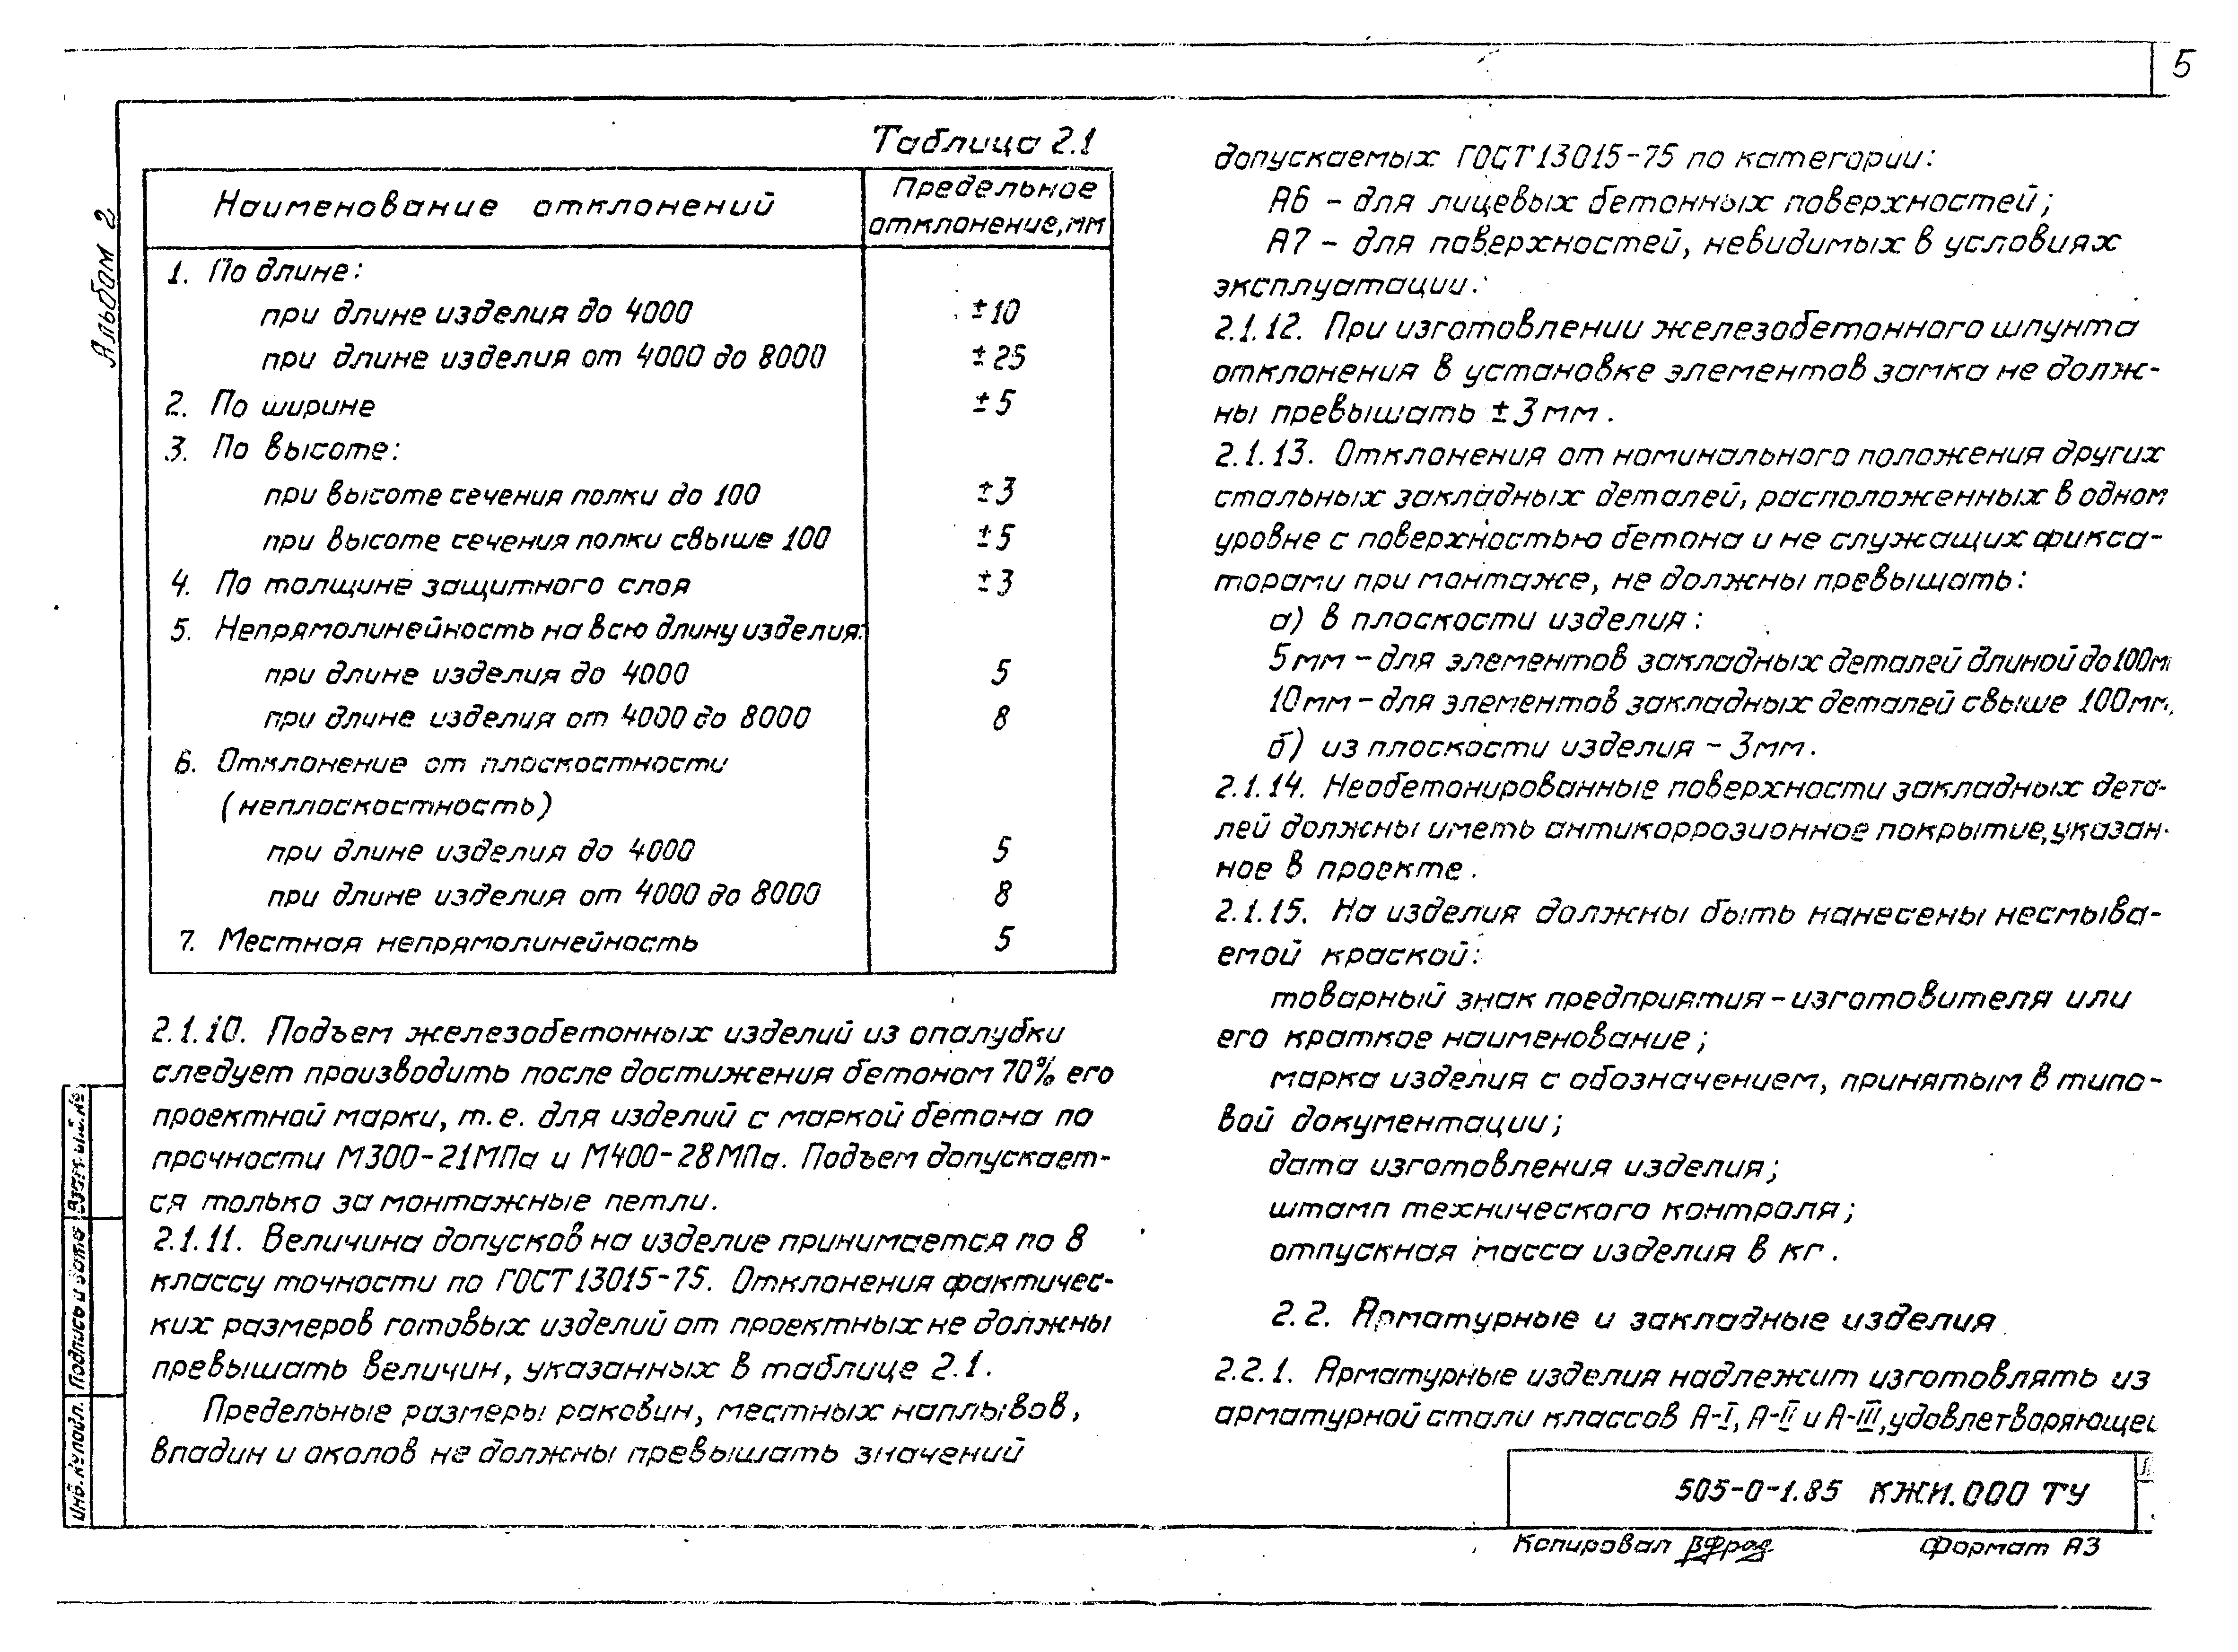 5
Альбом 2
Таблица 2.1
Наименование отклонений
Предельное
отклонение, мм
1. По длине:
при длине изделия до 4000 ±10
при длине изделия от 4000 до 8000 ±25
2. По ширине ±5
3. По высоте:
при высоте сечения полки до 100 ±3
при высоте сечения полки свыше 100 ±5
4. По толщине защитного слоя ±3
5. Непрямолинейность на всю длину изделия:
при длине изделия до 4000 5
при длине изделия от 4000 до 8000 8
6. Отклонение от плоскостности
(неплоскостность)
при длине изделия до 4000 5
при длине изделия от 4000 до 8000 8
7. Местная непрямолинейность 5
2.1.10. Подъем железобетонных изделий из опалубки
следует производить после достижения бетоном 70% его
проектной марки, т.е. для изделий с маркой бетона по
прочности М300-21МПа и М400-28МПа. Подъем допускает-
ся только за монтажные петли.
2.1.11. Величина допусков на изделие принимается по 8
классу точности по ГОСТ 13015-75. Отклонения фактичес-
ких размеров готовых изделий от проектных не должны
превышать величин, указанных в таблице 2.1.
Предельные размеры раковин, местных наплывов,
впадин и околов не должны превышать значений
допускаемых ГОСТ 13015-75 по категории:
А6 - для лицевых бетонных поверхностей;
А7 - для поверхностей, невидимых в условиях
эксплуатации.
2.1.12. При изготовлении железобетонного шпунта
отклонения в установке элементов замка не долж-
ны превышать ±3мм.
2.1.13. Отклонения от номинального положения других
стальных закладных деталей, расположенных в одном
уровне с поверхностью бетона и не служащих фикса-
торами при монтаже, не должны превышать:
а) в плоскости изделия:
5мм - для элементов закладных деталей длиной до 100м
10мм - для элементов закладных деталей свыше 100мм,
б) из плоскости изделия - 3мм.
2.1.14. Необетонированные поверхности закладных дета-
лей должны иметь антикоррозионное покрытие, указан-
ное в проекте.
2.1.15. На изделия должны быть нанесены несмыва-
емой краской:
товарный знак предприятия-изготовителя или
его краткое наименование;
марка изделия с обозначением, принятым в типо-
вой документации;
дата изготовления изделия;
штамп технического контроля;
отпускная масса изделия в кг.
2.2. Арматурные и закладные изделия
2.2.1. Арматурные изделия надлежит изготовлять из
арматурной стали классов А-I, А-II и А-III, удовлетворяющей
Инв. № подл. Подпись и дата Взам. инв. №
505-0-1.85 КЖИ.000 ТУ
Копировал
Формат А3